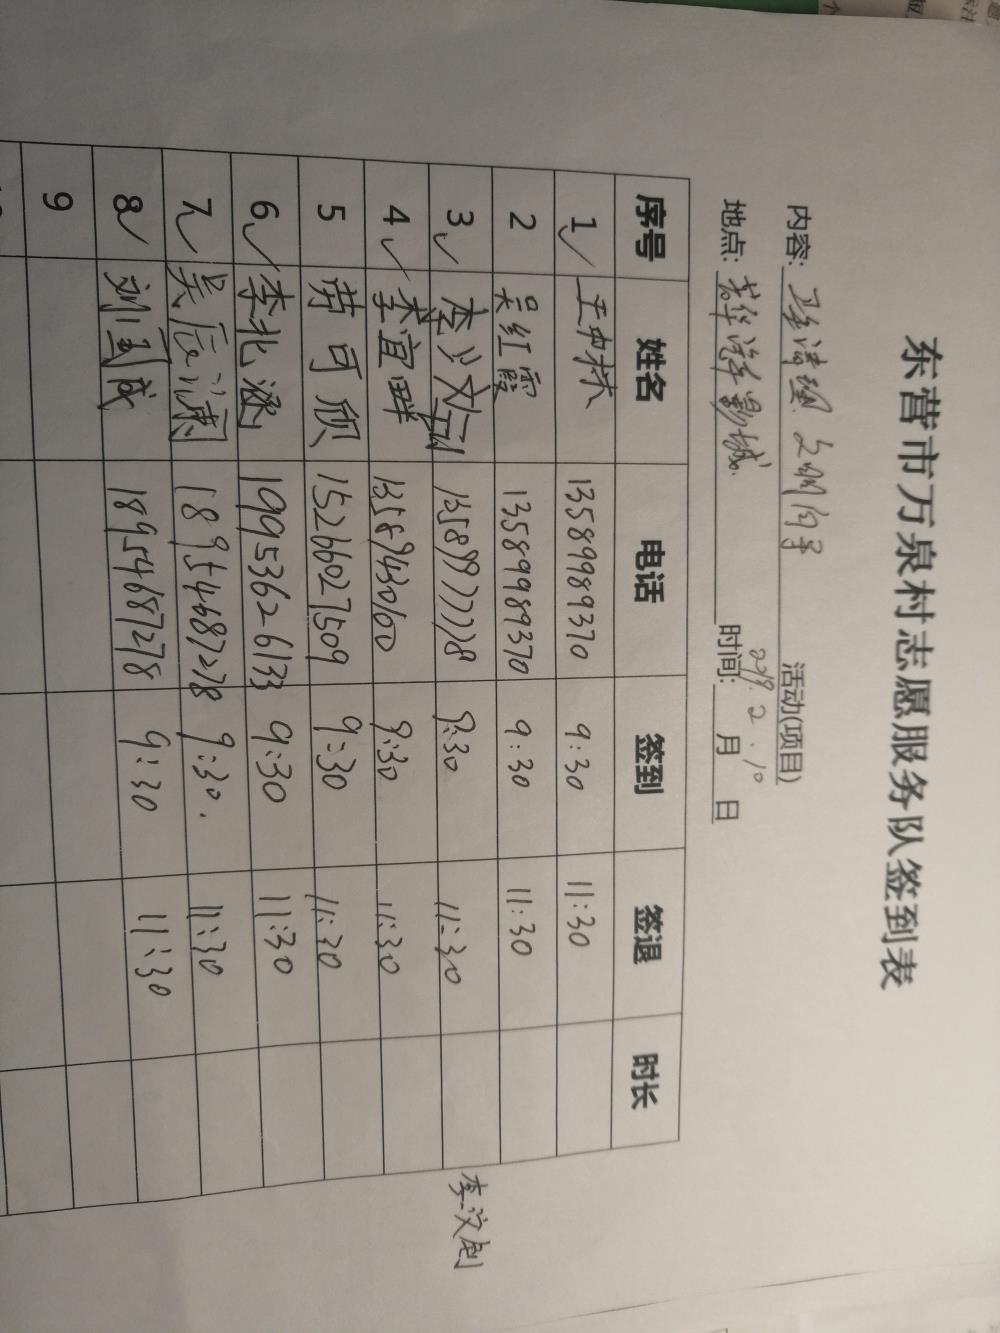 东营市万泉村志愿服务队签到表
内容: 卫生清理 文明向导 活动(项目)
地点: 时间: 2019.2.10 月 日
序号 姓名 电话 签到 签退 时长
1✓ 13589989370 9:30 11:30
2 吴红霞 13589989370 9:30 11:30
3✓ 13589977778 9:30 11:30 李汶钊
4✓ 李宜畔 13589430160 9:30 11:30
5 劳可欣 15266027509 9:30 11:30
6✓ 李北逐 19953626133 9:30 11:30
7✓ 吴辰 18954687278 9:30. 11:30
8✓ 18954687278 9:30 11:30
9